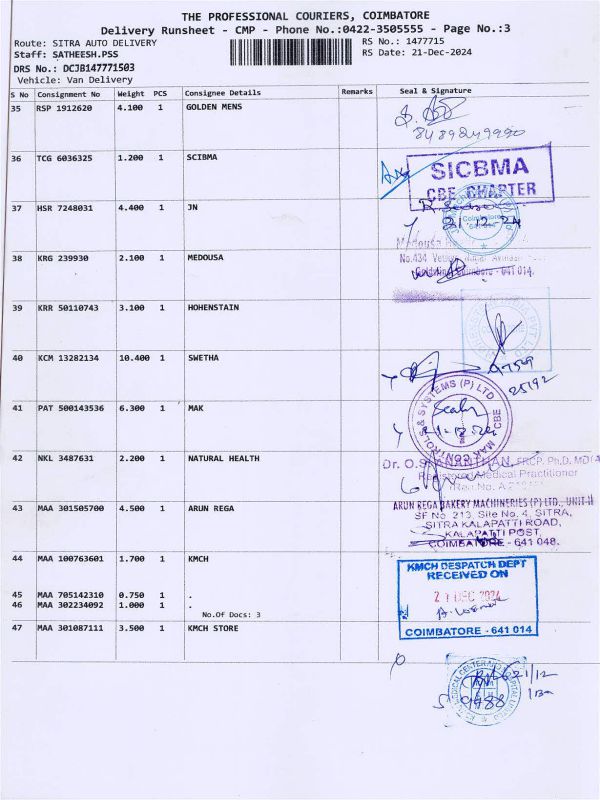 THE PROFESSIONAL COURIERS, COIMBATORE
Delivery Runsheet - CMP - Phone No.:0422-3505555 - Page No.:3
Route: SITRA AUTO DELIVERY RS No.: 1477715
Staff: SATHEESH.PSS RS Date: 21-Dec-2024
DRS No.: DCJB147771503
Vehicle: Van Delivery
S No Consignment No Weight PCS Consignee Details Remarks Seal & Signature
35 RSP 1912620 4.100 1 GOLDEN MENS
36 TCG 6036325 1.200 1 SCIBMA
SICBMA
CBE CHARTER
37 HSR 7248031 4.400 1 JN
Coimbatore
21-12-24
38 KRG 239930 2.100 1 MEDOUSA
Medousa
No.434,
- 641 014.
39 KRR 50110743 3.100 1 HOHENSTAIN
40 KCM 13282134 10.400 1 SWETHA
25192
41 PAT 500143536 6.300 1 MAK
MAK CONTROLS & SYSTEMS (P) LTD
CBE
42 NKL 3487631 2.200 1 NATURAL HEALTH
FRCP. Ph.D.
Registered Medical Practitioner
43 MAA 301505700 4.500 1 ARUN REGA
ARUN REGA BAKERY MACHINERIES (P) LTD., UNIT-II
SF No. 213, Site No. 4, SITRA,
SITRA KALAPATTI ROAD,
KALAPATTI POST,
COIMBATORE - 641 048.
44 MAA 100763601 1.700 1 KMCH
KMCH DESPATCH DEPT
RECEIVED ON
21 DEC 2024
COIMBATORE - 641 014
45 MAA 705142310 0.750 1 .
46 MAA 302234092 1.000 1 .
No.Of Docs: 3
47 MAA 301087111 3.500 1 KMCH STORE
21/12